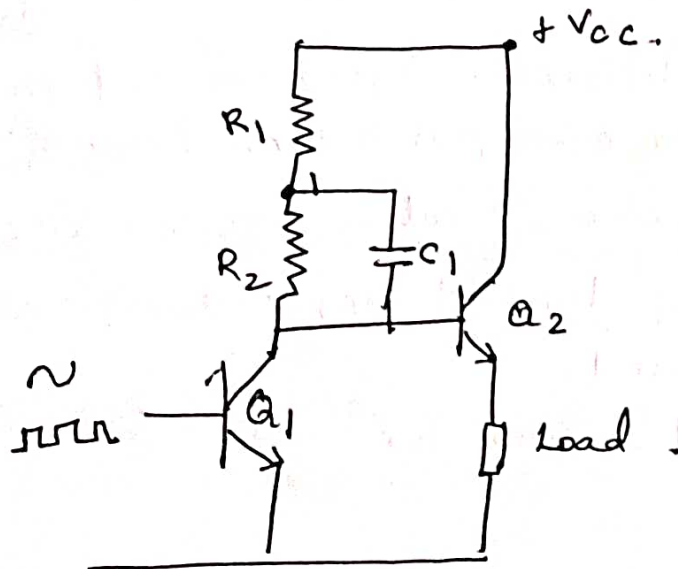 + Vcc.
R1
R2
C1
Q2
Q1
Load